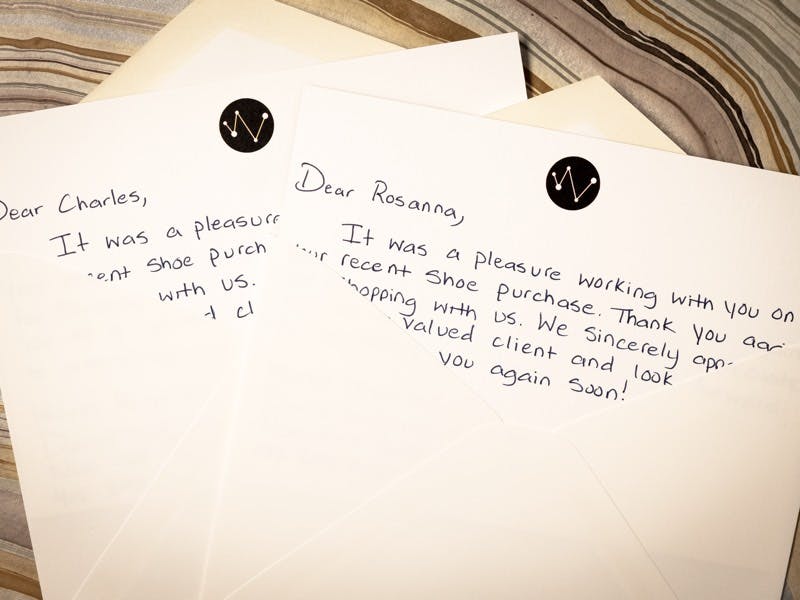 Dear Charles,
It was a pleasure
shoe purch
with us.
Dear Rosanna,
It was a pleasure working with you on
recent shoe purchase. Thank you
shopping with us. We sincerely
valued client and look
you again soon!